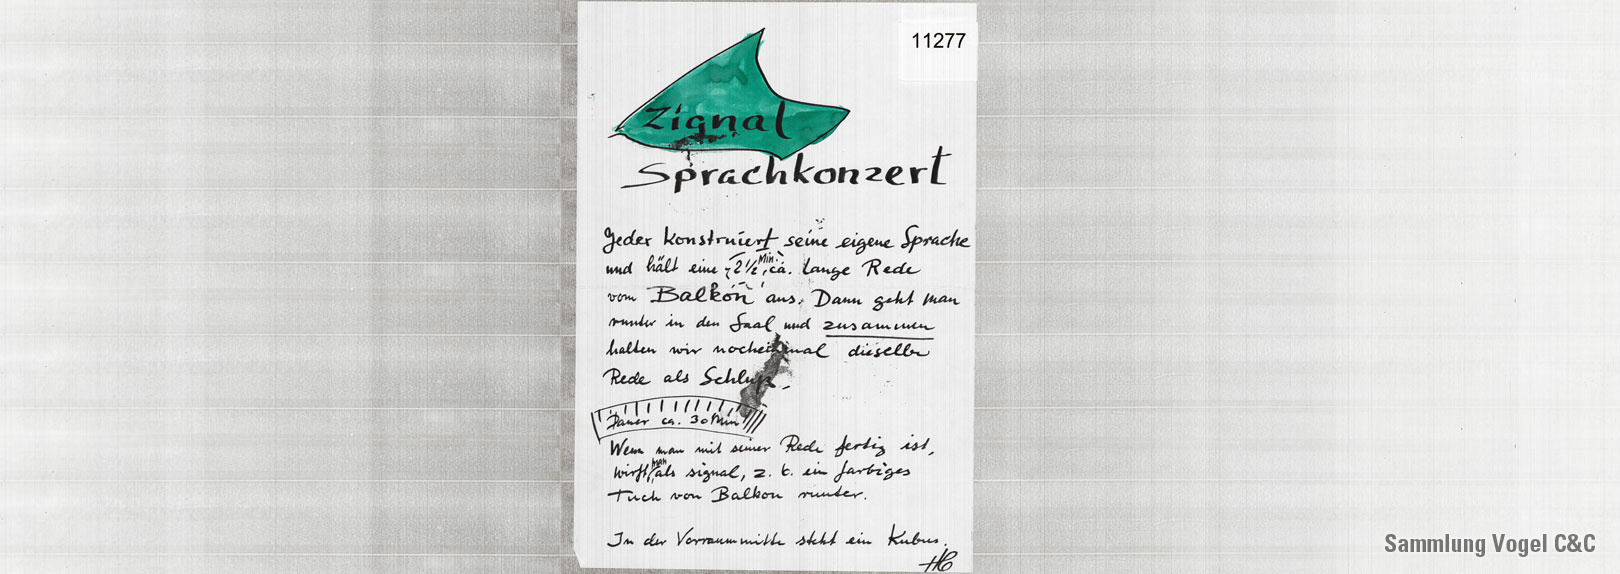 11277
Zignal
Sprachkonzert
Jeder konstruiert seine eigene Sprache
und hält eine 2½ Min. ca. lange Rede
vom Balkon aus. Dann geht man
runter in den Saal und zusammen
halten wir nocheinmal dieselbe
Rede als Schluß.
Dauer ca. 30 Min
Wenn man mit seiner Rede fertig ist,
wirft man als signal, z. b. ein farbiges
Tuch von Balkon runter.
In der Vorraummitte steht ein Kubus.
HC
Sammlung Vogel C&C